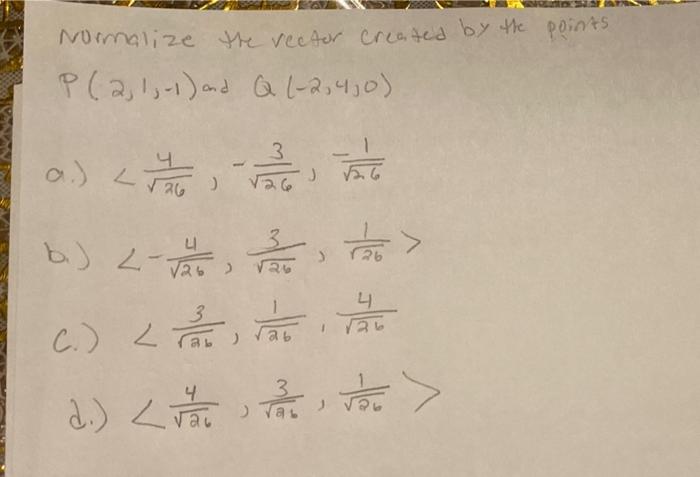 Normalize the vector created by the points
P(2,1,-1) and Q(-2,4,0)
a.) < 4/√26 , -3/√26 , -1/√26
b.) < -4/√26 , 3/√26 , 1/√26 >
c.) < 3/√26 , 1/√26 , 4/√26
d.) < 4/√26 , 3/√26 , 1/√26 >